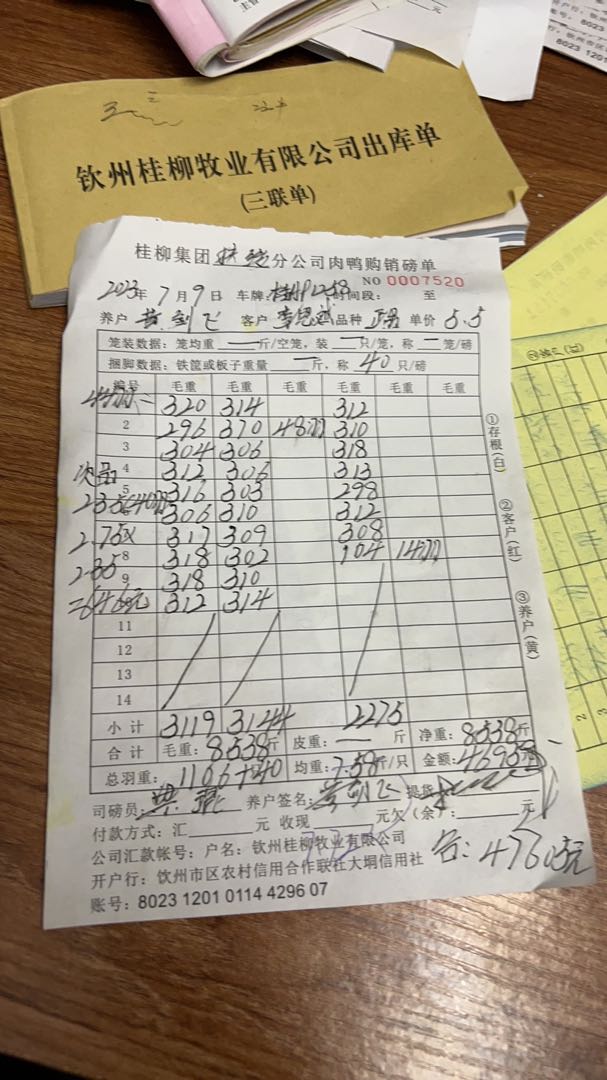 钦州桂柳牧业有限公司出库单
(三联单)
8023 1201
桂柳集团 分公司肉鸭购销磅单
NO 0007520
2023年 7月9日 车牌: 时间段: 至
养户 黄剑飞 客户 品种 单价 5.5
笼装数据: 笼均重 一 斤/空笼, 装 一 只/笼, 称 一 笼/磅
捆脚数据: 铁筐或板子重量 一 斤, 称 40 只/磅
编号 毛重 毛重 毛重 毛重 毛重 毛重
44只 320 314 312
2 296 370 48只 310
3 304 306 318
次品: 4 312 306 313
5 316 303 298
235 (40只) 306 310 312
2.75x 317 309 308
2.35 8 318 302 104 14只
9 318 310
=646元 312 314
11
12
13
14
小计 3119 3144 2275
合计 毛重: 8538斤 皮重: 一 斤 净重: 8538斤
总羽重: 1106+40 均重: 7.58斤/只 金额: 46959元
司磅员: 养户签名: 黄剑飞 提货
付款方式: 汇 元 收现 元欠(余): 元
公司汇款帐号: 户名: 钦州桂柳牧业有限公司
开户行: 钦州市区农村信用合作联社大垌信用社
合: 47605元
账号: 8023 1201 0114 4296 07
①存根(白)
②客户(红)
③养户(黄)